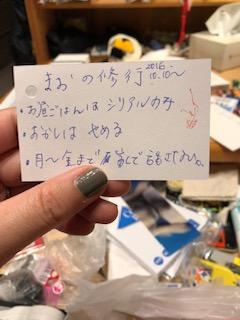 まおの修行 2016 10.10〜
・お昼ごはんは シリアルのみ
・おかしは やめる
・月〜金まで